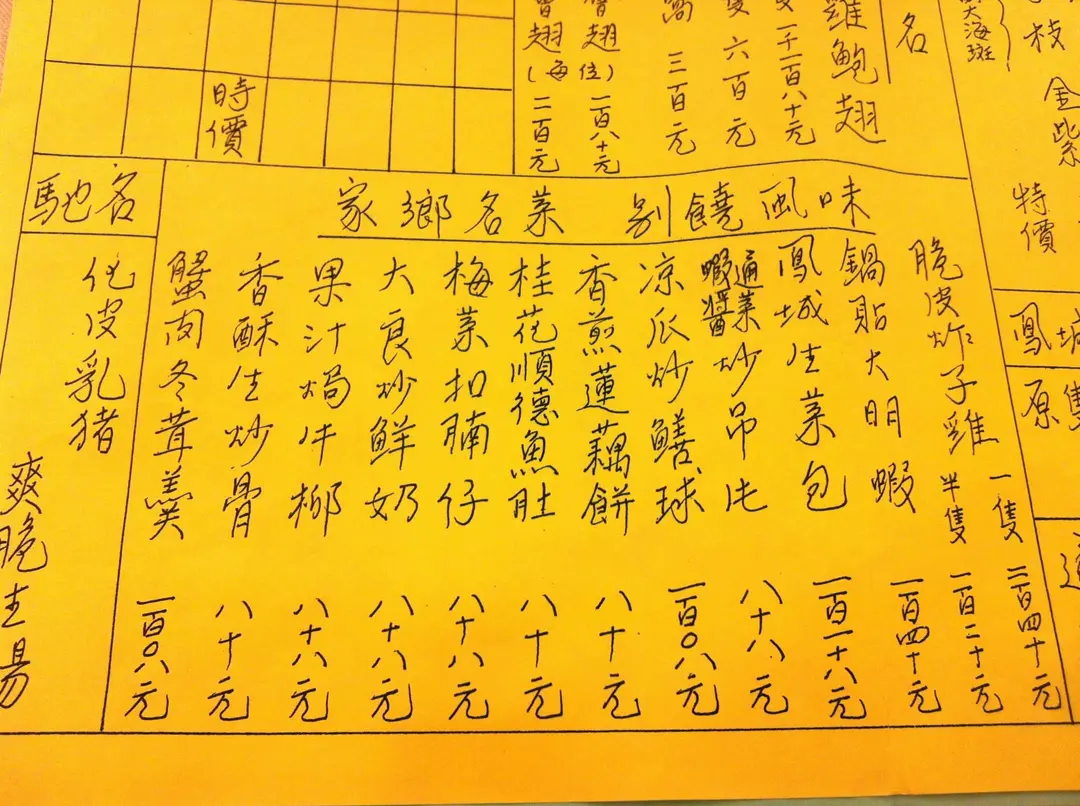 枝
金紫
特價
大海斑
鳳城
原隻
名
雞鮑翅
一千二百八十元
六百元
三百元
翅(每位)一百八十元
翅(每位)二百元
時價
家鄉名菜 別饒風味
脆皮炸子雞 一隻 二百四十元
半隻 一百二十元
鍋貼大明蝦 一百四十元
鳳城生菜包 一百一十八元
通菜蝦醬炒吊片 八十八元
凉瓜炒鱔球 一百〇八元
香煎蓮藕餅 八十元
桂花順德魚肚 八十元
梅菜扣腩仔 八十八元
大良炒鮮奶 八十八元
果汁焗牛柳 八十八元
香酥生炒骨 八十元
蟹肉冬茸羹 一百〇八元
馳名
化皮乳猪
爽脆生腸